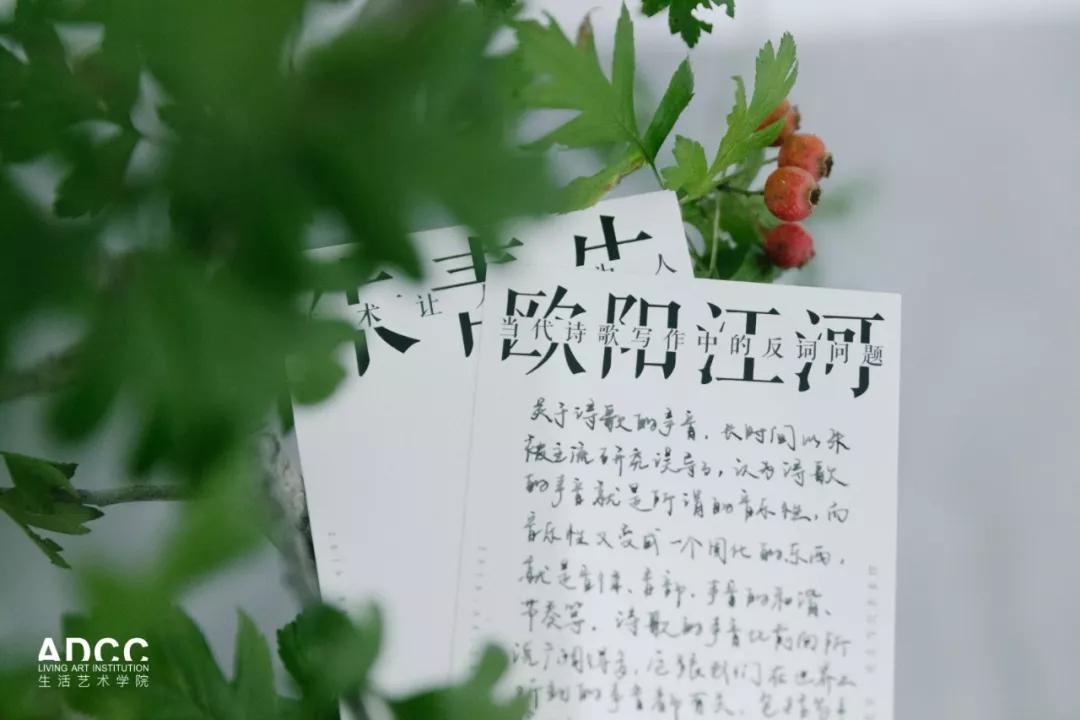 欧阳江河
当代诗歌写作中的反词问题
关于诗歌的声音，长时间以来
被主流研究误导了，认为诗歌
的声音就是所谓的音乐性，而
音乐性又变成一个固化的东西，
就是韵律、音部、声音的和谐、
节奏等。诗歌的声音比前面所
说广阔得多，它跟我们在世界上
听到的声音都有关，包括
术 让
人
ADCC
LIVING ART INSTITUTION
生活艺术学院